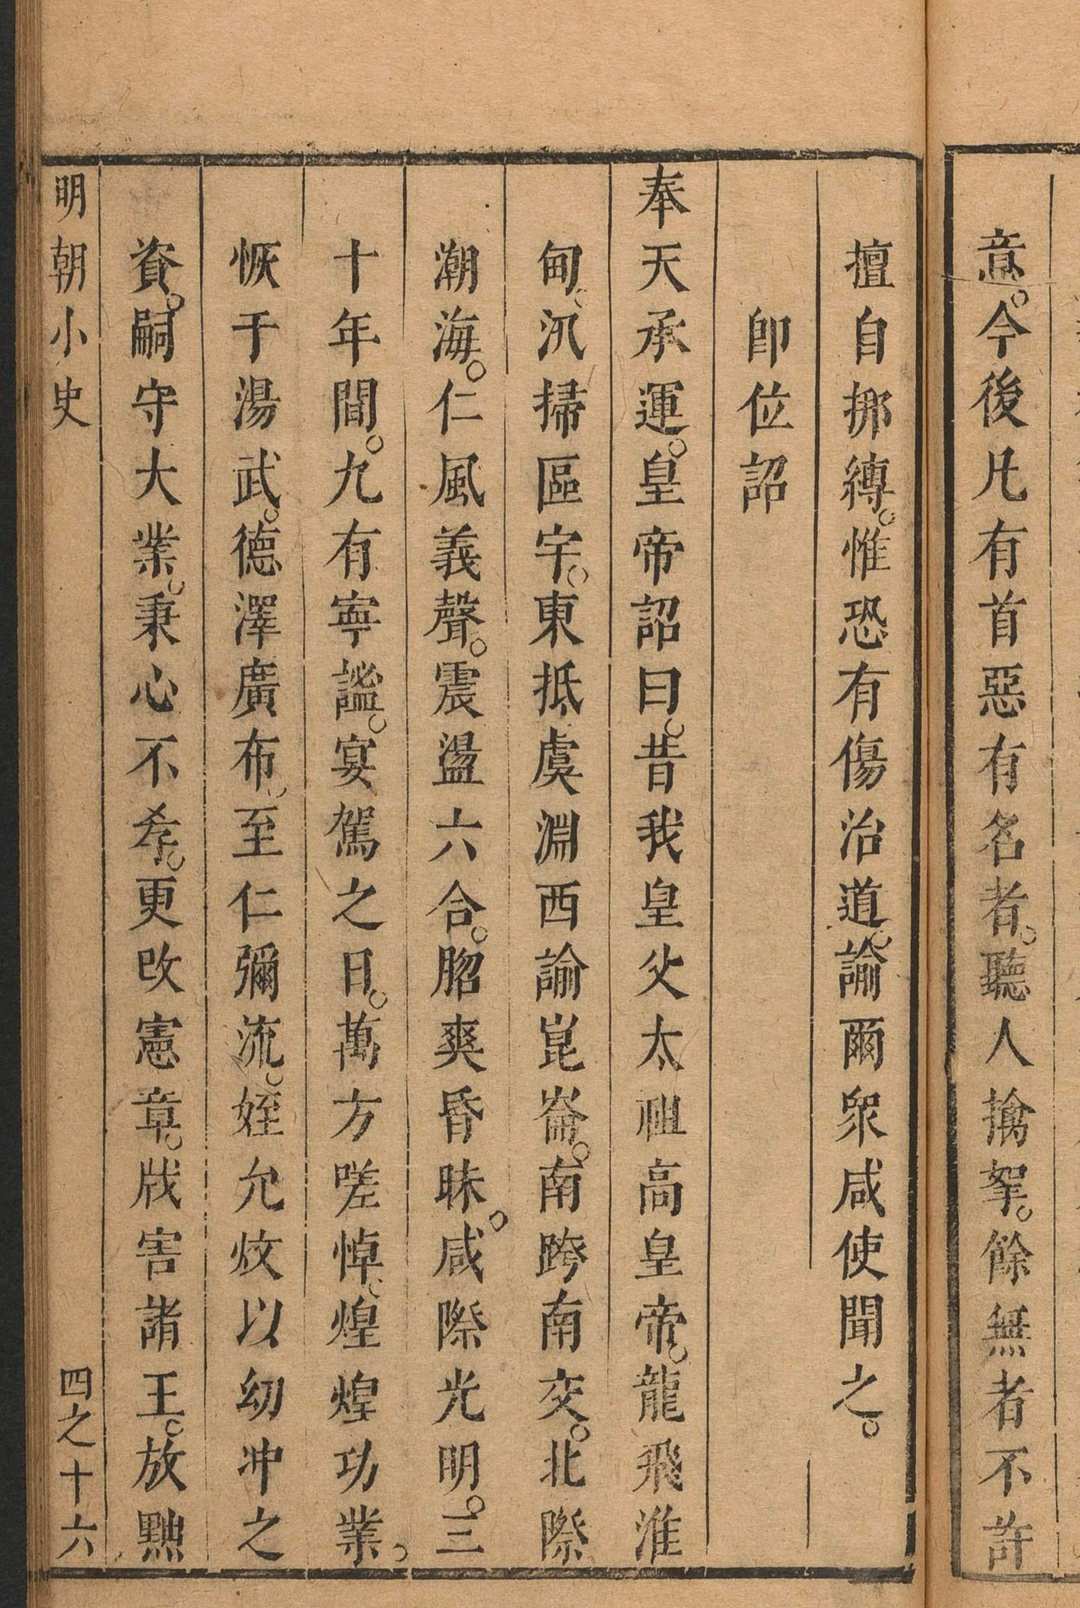 意。今後凡有首惡有名者。聽人擒拏。餘無者不許
擅自挪縛。惟恐有傷治道。諭爾衆咸使聞之。
卽位詔
奉天承運。皇帝詔曰。昔我皇父太祖高皇帝。龍飛淮
甸。汛掃區宇。東抵虞淵西諭崑崙。南跨南交。北際
瀚海。仁風義聲。震盪六合。曶爽昏昧。咸際光明。三
十年間。九有寧謐。宴駕之日。萬方嗟悼。煌煌功業。
恢于湯武。德澤廣布。至仁彌流。姪允炆以幼冲之
資。嗣守大業。秉心不孝。更改憲章。戕害諸王。放黜
明朝小史
四之十六